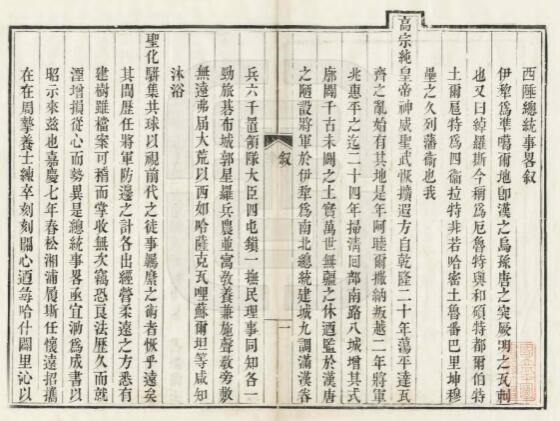 西陲總統事畧叙
伊犂爲準噶爾地卽漢之烏孫唐之突厥明之瓦剌
也又曰綽羅斯今稱爲厄魯特與和碩特都爾伯特
土爾扈特爲四衛拉特非若哈密土魯番巴里坤穆
壘之久列藩衞也我
高宗純皇帝神威聖武恢擴遐方自乾隆二十年蕩平達瓦
齊之亂始有其地是年阿睦爾撒納叛越二年將軍
兆惠平之迄二十四年掃淸回部南路八城增其式
廓闢千古未闢之土實萬世無疆之休迺監於漢唐
之陋設將軍於伊犂爲南北總統建城九調滿漢
叙
一
兵六千置領隊大臣四屯鎭一撫民理事同知各一
勁旅碁布城郭星羅兵農並寓敎養兼施聲敎旁敷
無遠弗屆大荒以西如哈薩克瓦哩蘇爾坦等咸知
沐浴
聖化駢集共球以視前代之徒事羈縻之術者恢乎遠矣
其間歷任將軍防邊之計各出經營柔遠之方悉有
建樹雖檔案可稽而掌收無次竊恐良法歷久而就
湮增損從心而勢異是總統事畧亟宜泐爲成書以
昭示來茲也嘉慶七年春松湘浦履斯任懷遠招攜
在在周摯養士練卒刻刻關心迺每哈什闢里沁以